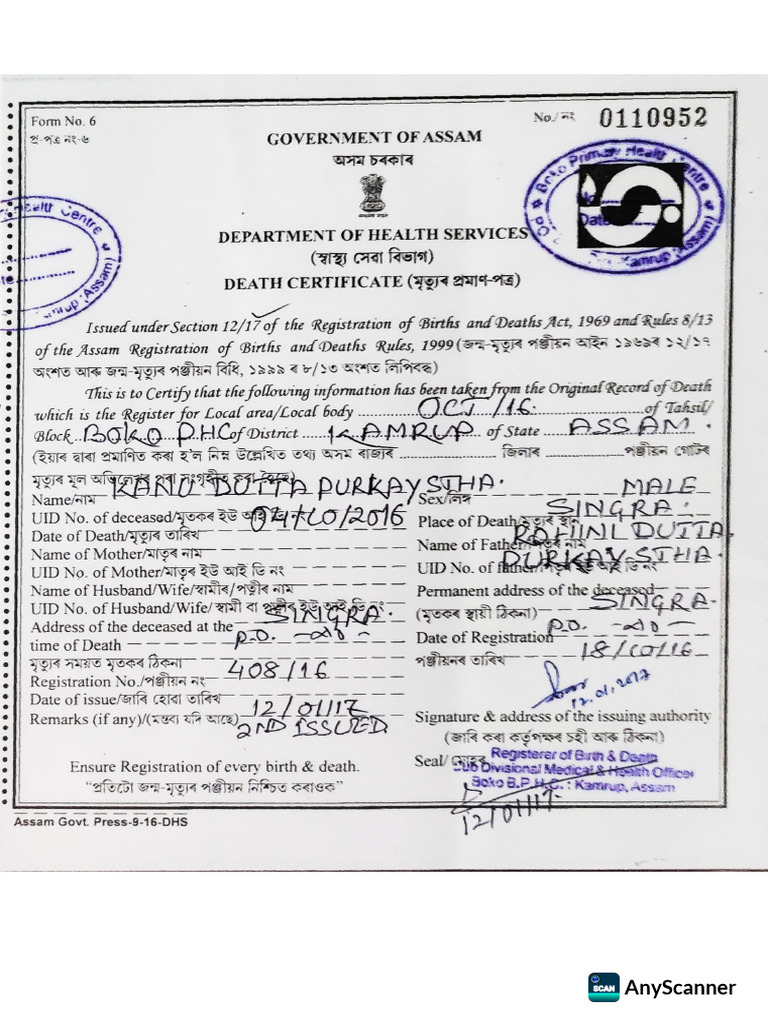 Form No. 6
প্ৰ-পত্ৰ নং-৬
No./নং 0110952
GOVERNMENT OF ASSAM
অসম চৰকাৰ
DEPARTMENT OF HEALTH SERVICES
(স্বাস্থ্য সেৱা বিভাগ)
DEATH CERTIFICATE (মৃত্যুৰ প্ৰমাণ-পত্ৰ)
Boko Primary Health Centre
Date
Kamrup (Assam)
Health Centre
Kamrup (Assam)
Issued under Section 12/17 of the Registration of Births and Deaths Act, 1969 and Rules 8/13
of the Assam Registration of Births and Deaths Rules, 1999 (জন্ম-মৃত্যুৰ পঞ্জীয়ন আইন ১৯৬৯ৰ ১২/১৭
অংশত আৰু জন্ম-মৃত্যুৰ পঞ্জীয়ন বিধি, ১৯৯৯ ৰ ৮/১৩ অংশত লিপিবদ্ধ)
This is to Certify that the following information has been taken from the Original Record of Death
which is the Register for Local area/Local body OCT/16. of Tahsil/
Block BOKO P.HC of District KAMRUP of State ASSAM.
(ইয়াৰ দ্বাৰা প্ৰমাণিত কৰা হ'ল নিম্ন উল্লেখিত তথ্য অসম ৰাজ্যৰ জিলাৰ পঞ্জীয়ন গোটৰ
মৃত্যুৰ মূল
Name/নাম KANU DUTTA PURKAYSTHA.
Sex/লিঙ্গ MALE
UID No. of deceased/মৃতকৰ ইউ আই ডি নং
Place of Death/মৃত্যুৰ স্থান SINGRA.
Date of Death/মৃত্যুৰ তাৰিখ 04/10/2016
Name of Mother/মাতৃৰ নাম
Name of Father/পিতৃৰ নাম ROHINI DUTTA PURKAYSTHA.
UID No. of Mother/মাতৃৰ ইউ আই ডি নং
UID No. of father/পিতৃৰ ইউ আই ডি নং
Name of Husband/Wife/স্বামীৰ/পত্নীৰ নাম
Permanent address of the deceased
UID No. of Husband/Wife/
(মৃতকৰ স্থায়ী ঠিকনা) SINGRA.
Address of the deceased at the SINGRA.
P.O. -do-
time of Death P.O. -do-
Date of Registration 18/10/16
মৃত্যুৰ সময়ত মৃতকৰ ঠিকনা
পঞ্জীয়নৰ তাৰিখ
Registration No./পঞ্জীয়ন নং 408/16
Date of issue/জাৰি হোৱা তাৰিখ 12/01/17
12.01.2017
Remarks (if any)/(মন্তব্য যদি আছে) 2ND ISSUED.
Signature & address of the issuing authority
(জাৰি কৰা কৰ্তৃপক্ষৰ চহী আৰু ঠিকনা)
Seal/মোহৰ
Registerer of Birth & Death
Sub Divisional Medical & Health Officer
Boko B.P.H.C. : Kamrup, Assam
12/01/17.
Ensure Registration of every birth & death.
“প্ৰতিটো জন্ম-মৃত্যুৰ পঞ্জীয়ন নিশ্চিত কৰাওক”
Assam Govt. Press-9-16-DHS
SCAN AnyScanner